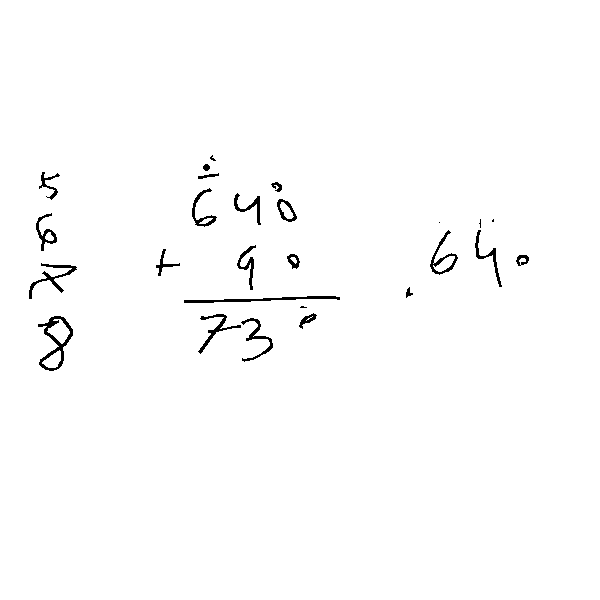 5
6
7
8
640
+ 90
730
640